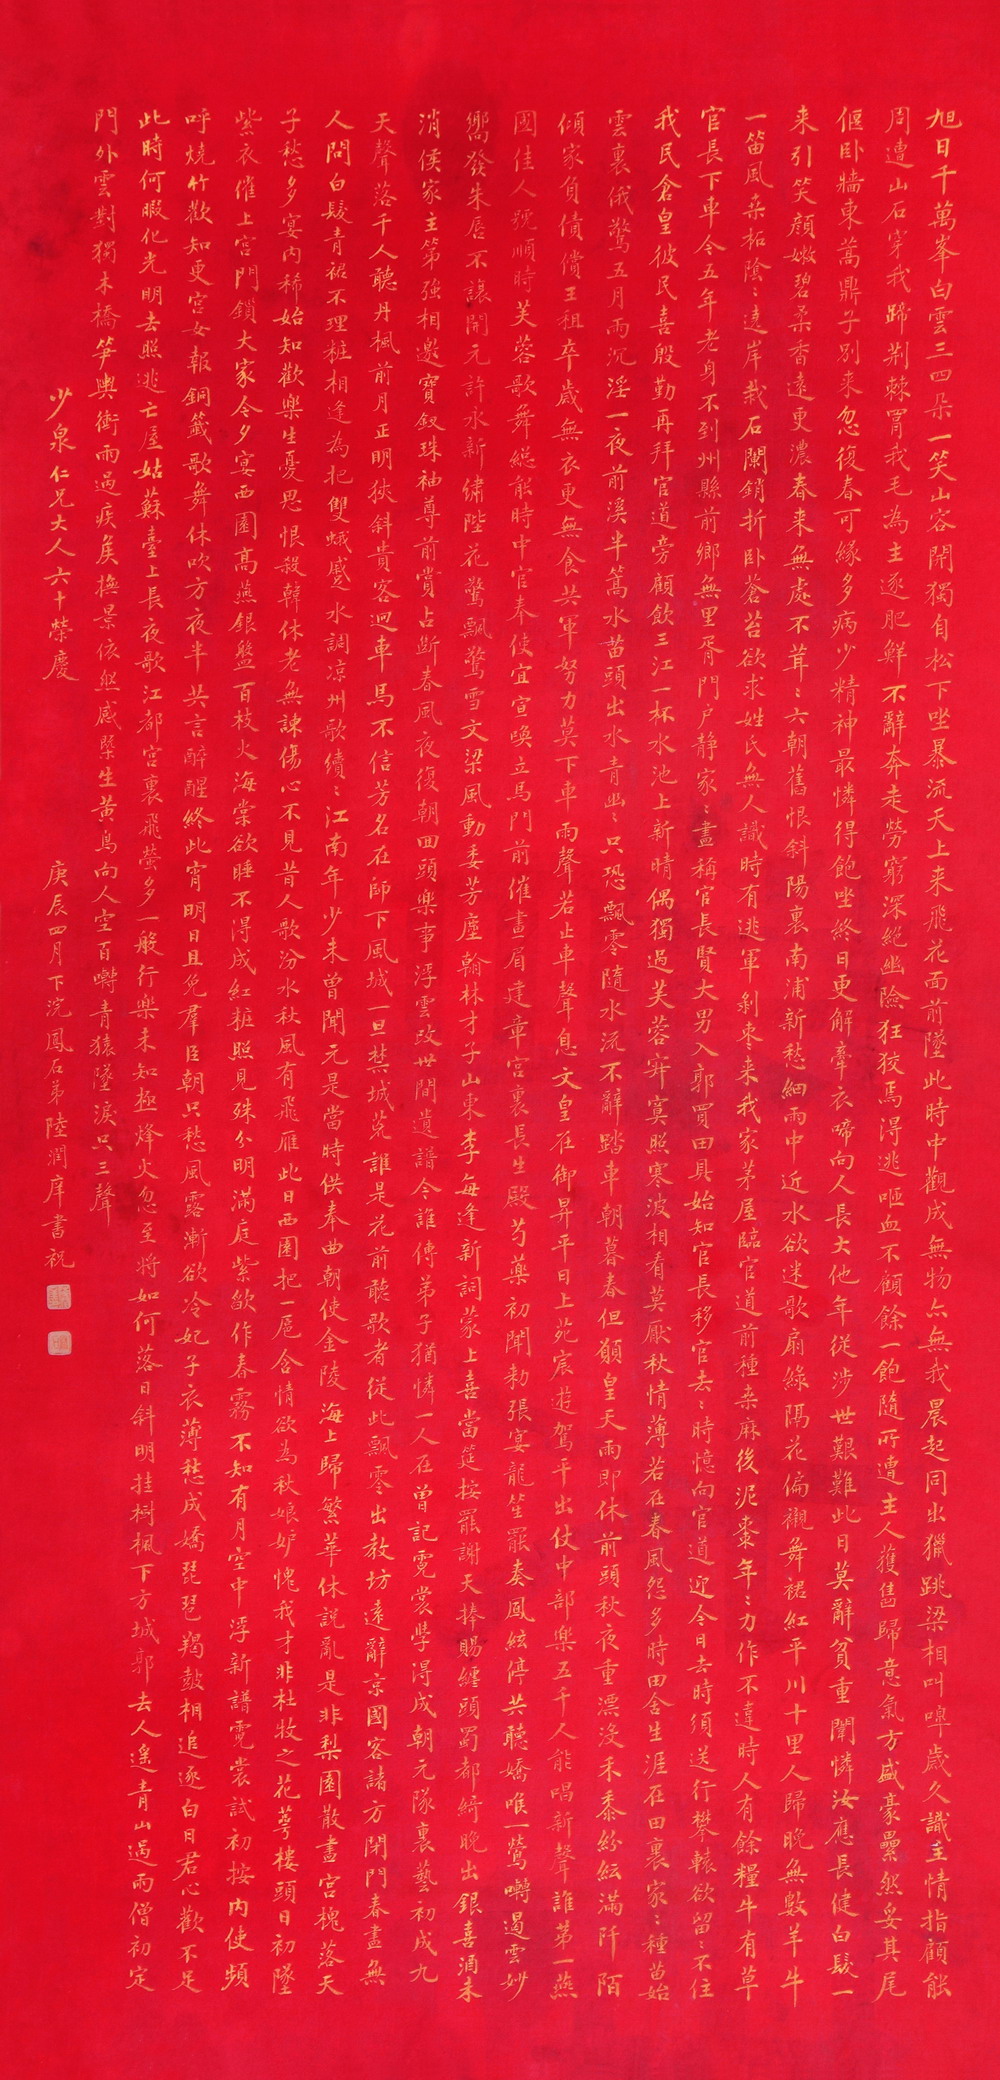 旭日千萬峯白雲三四朵一笑山容開獨自松下坐暴流天上来飛花面前墜此時中觀成無物亦無我晨起同出獵跳梁相叫嘷歲久識主情指顧能
周遭山石穿我蹄荆棘罥我毛為主逐肥鮮不辭奔走勞窮深絕幽險狂狡焉得逃咂血不顧餘一飽隨所遭主人獲雋歸意氣方盛豪纍然妥其尾
偃卧牆東蒿鼎子別来忽復春可緣多病少精神最憐得飽坐終日更解牽衣啼向人長大他年從涉世艱難此日莫辭貧重闈憐汝應長健白髮一
来引笑顏嫩碧柔香遠更濃春来無處不茸〻六朝舊恨斜陽裏南浦新愁細雨中近水欲迷歌扇綠隔花偏襯舞裙紅平川十里人歸晚無數羊牛
一笛風桒柘陰〻遶岸栽石闌銷折卧蒼苔欲求姓氏無人識時有逃軍剝枣来我家茅屋臨官道前種桒麻後泥棗年〻力作不違時人有餘糧牛有草
官長下車今五年老身不到州縣前鄉無里胥門戶静家〻晝稱官長賢大男入郭買田具始知官長移官去〻時憶向官道迎今日去時須送行攀轅欲留〻不住
我民倉皇彼民喜殷勤再拜官道旁顧飲三江一杯水池上新晴偶獨過芙蓉寂寞照寒波相看莫厭秋情薄若在春風怨多時田舍生涯在田裏家〻種苗始
雲裏俄驚五月雨沉淫一夜前溪半篙水苗頭出水青幽〻只恐飄零隨水流不辭踏車朝暮春但願皇天雨即休前頭秋夜重漂沒禾黍紛紜滿阡陌
傾家負債償王租卒歲無衣更無食共軍努力莫下車雨聲若止車聲息文皇在御昇平日上苑宸遊駕平出仗中部樂五千人能唱新聲誰第一燕
國佳人號順時芙蓉歌舞總能時中官奉使宜宣喚立馬門前催畫眉建章宮裏長生殿芍藥初開勅張宴龍笙罷奏鳳絃停共聽嬌唯一鶯囀遏雲妙
嚮發朱唇不讓開元許永新繡陛花驚飄驚雪文梁風動委芳塵翰林才子山東李每逢新詞蒙上喜當筵按罷謝天捧賜纏頭蜀都綺晚出銀喜酒未
消侯家主第強相邀寶釵珠袖尊前賞占斷春風夜復朝回頭樂事浮雲改世間遺譜今誰傳弟子猶憐一人在曾記霓裳學得成朝元隊裏藝初成九
天聲落千人聽丹楓前月正明狹斜貴客迴車馬不信芳名在師下風城一旦禁城荒誰是花前聽歌者從此飄零出教坊遠辭京國客諸方閉門春晝無
人問白髮青裙不理粧相逢為把雙蛾蹙水調凉州歌續〻江南年少未曾聞元是當時供奉曲朝使金陵海上歸繁華休説亂是非梨園散畫宮槐落天
子愁多宴內稀始知歡樂生憂思恨殺韓休老無諫傷心不見昔人歌汾水秋風有飛雁此日西園把一巵含情欲為秋娘妒愧我才非杜牧之花萼樓頭日初墜
紫衣催上宮門鎖大家今夕宴西園高燕銀盤百枝火海棠欲睡不得成紅粧照見殊分明滿庭紫歛作春霧不知有月空中浮新譜霓裳試初按內使頻
呼燒竹歡知更宮女報銅籤歌舞休吹方夜半共言醉醒終此宵明日且免羣臣朝只愁風露漸欲冷妃子衣薄愁成嬌琵琶羯鼓相追逐白日君心歡不足
此時何暇化光明去照逃亡屋姑蘇臺上長夜歌江都宮裏飛螢多一般行樂未知極烽火忽至將如何落日斜明挂樹楓下方城郭去人遥青山過雨僧初定
門外雲對獨木橋笋輿衝雨過疾矦撫景依然感槩生黄鳥向人空百囀青猿墜淚只三聲
少泉仁兄大人六十榮慶
庚辰四月下浣鳳石弟陸潤庠書祝